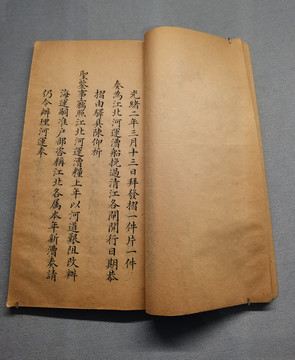 光緒二年三月十三日拜發摺一件片一件
奏為江北河運漕船挽過清江各閘開行日期恭
摺由驛具陳仰祈
聖鑒事竊照江北河運漕糧上年以河道艱阻改辦
海運嗣准户部咨稱江北各屬本年新漕奏請
仍令辦理河運奉